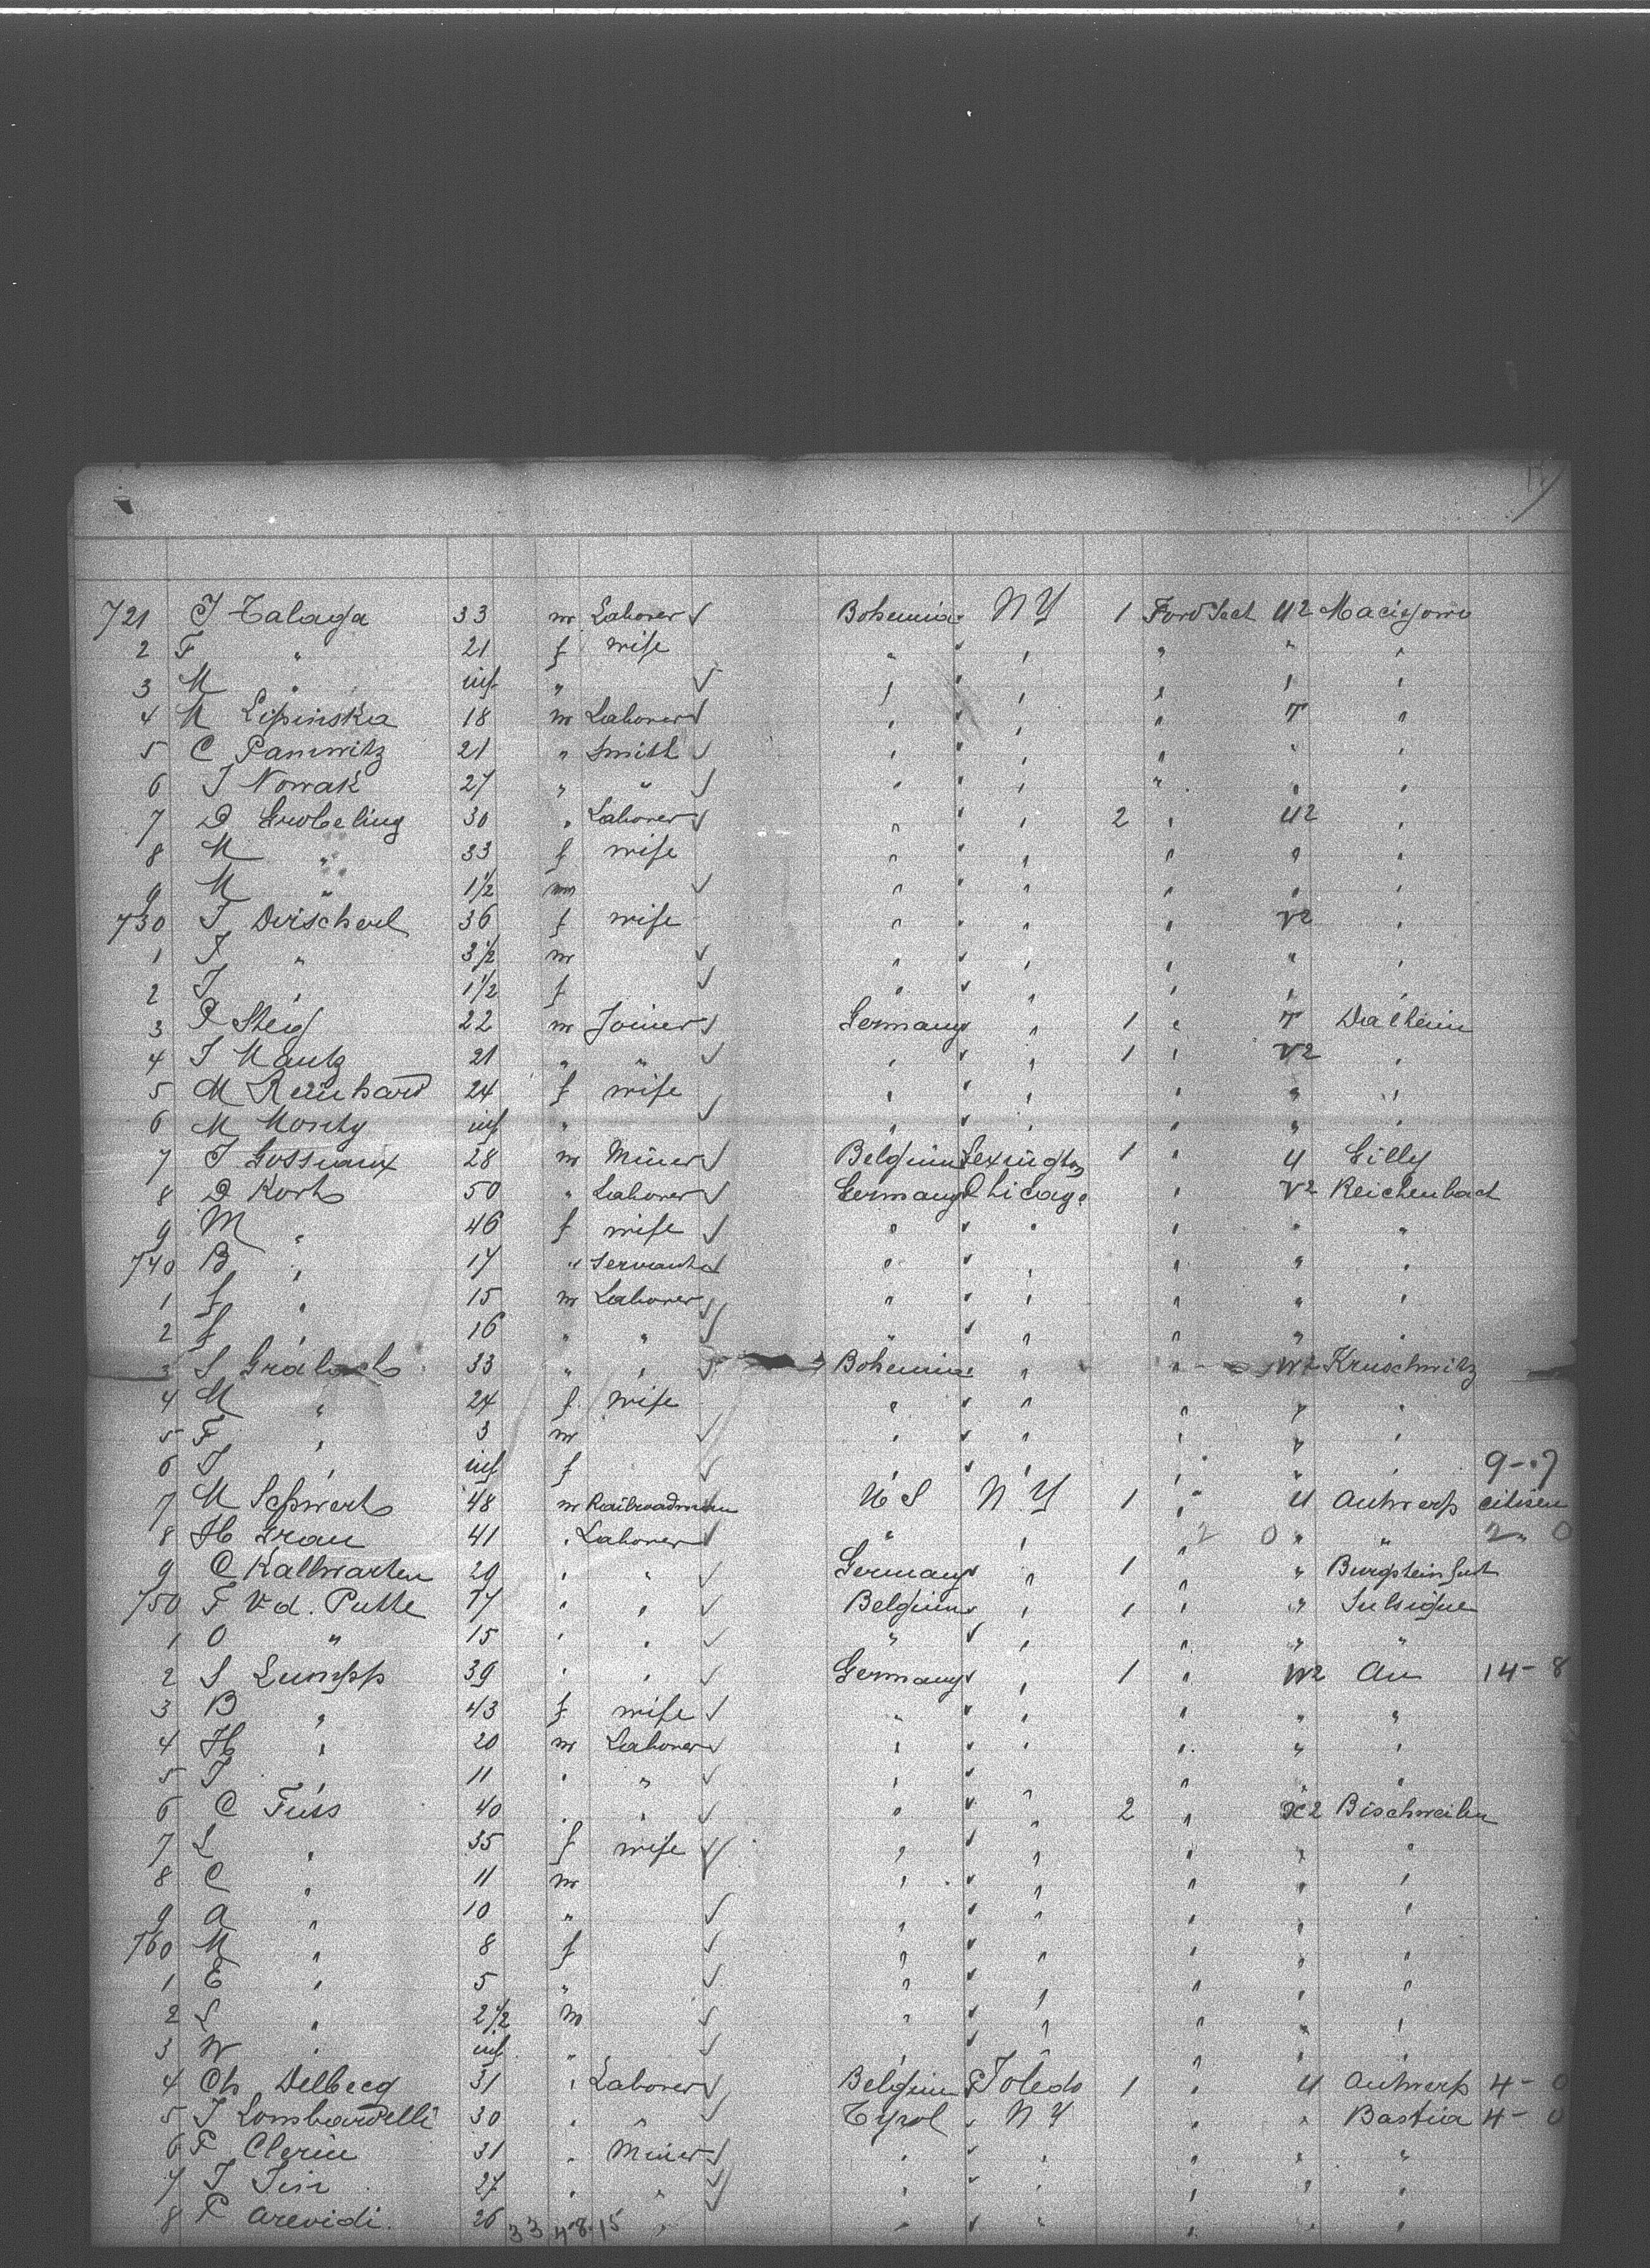 721 J Talaga 33 m Laborer √ Bohemia N Y 1 Forw Sect U2 Maciejowo
2 F " 21 f wife " " " " " "
3 M " inf " √ " " " " " "
4 M Lipinska 18 m Laborer √ " " " " T "
5 C Pannwitz 21 " Smith √ " " " " " "
6 J Nowak 27 " " √ " " " " " "
7 D Grobeling 30 " Laborer √ " " " 2 " U2 "
8 M " 33 f wife " " " " " "
9 M " 1½ m √ " " " " " "
730 J Dirscherl 36 f wife " " " " V2 "
1 J " 3½ m √ " " " " " "
2 J " 1½ f √ " " " " " "
3 P Steig 22 m Joiner √ Germany " " 1 " T Dalheim
4 J Mautz 21 " " √ " " " 1 " V2 "
5 M Reinhard 24 f wife " " " " "
6 M Moritz inf " √ " " " " " "
7 J Gossiaux 28 m Miner √ Belgium Lexington 1 " U Gilly
8 D Korb 50 " Laborer √ Germany Chicago " V2 Reichenbach
9 M " 46 f wife √ " " " " " "
740 B " 17 " Servant √ " " " " " "
1 f " 15 m Laborer √ " " " " " "
2 f " 16 " " √ " " " " " "
3 S 33 " " √ Bohemia " " W2 Kruschwitz
4 M " 24 f wife " " " " " "
5 F " 3 m √ " " " " " "
6 J " inf f √ " " " " " " 9-7
7 M 48 m Railroadman U S N Y 1 " U Antwerp citisen
8 H Grau 41 " Laborer √ " " " 2 0 " " 2 " 0
9 C Kallwarten 29 " " √ Germany " " 1 " "
750 F V d. Putte 17 " " √ Belgium " " 1 " "
1 O " 15 " " √ " " " " " "
2 S Lumpp 39 " " √ Germany " " 1 " W2 Au 14-8
3 B " 43 f wife √ " " " " " "
4 H " 20 m Laborer √ " " " " " "
5 J " 11 " " √ " " " " " "
6 C Fuss 40 " " √ " " " 2 " X2 Bischweiler
7 L " 35 f wife √ " " " " " "
8 C " 11 m " " " " " "
9 A " 10 " √ " " " " " "
760 M " 8 f √ " " " " " "
1 E " 5 " √ " " " " " "
2 L " 2½ m √ " " " " " "
3 W " inf " √ " " " " " "
4 Ch Delbecq 31 " Laborer √ Belgium Toledo 1 " U Antwerp 4-0
5 J Lombardelli 30 " " √ Tyrol " N Y " " Bastia 4-0
6 P Clerin 31 " Miner √ " " " " " "
7 J 27 " " √ " " " " " "
8 P Arevidi 26 33 48 15 " " " " " " "